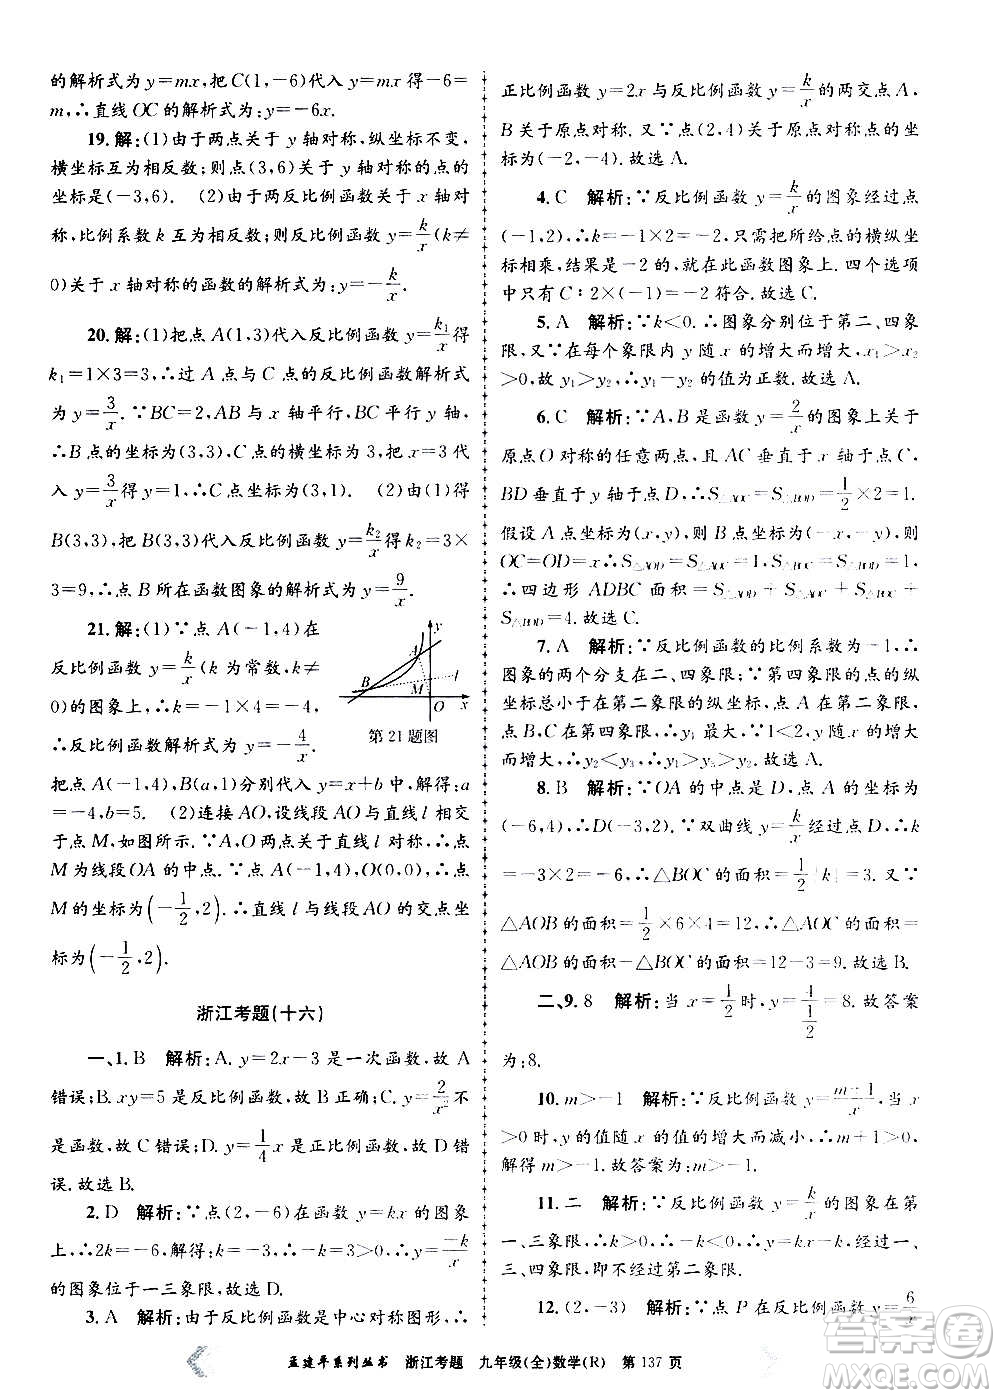 的解析式为y=mx,把C(1,-6)代入y=mx得-6=
m,∴直线OC的解析式为:y=-6x.
19.解:(1)由于两点关于y轴对称,纵坐标不变,
横坐标互为相反数;则点(3,6)关于y轴对称的点的
坐标是(-3,6). (2)由于两反比例函数关于x轴对
称,比例系数k互为相反数;则反比例函数y=k/x(k≠
0)关于x轴对称的函数的解析式为y=-k/x.
20.解:(1)把点A(1,3)代入反比例函数y=k₁/x得
k₁=1×3=3,∴过A点与C点的反比例函数解析式
为y=3/x.∵BC=2,AB与x轴平行,BC平行y轴,
∴B点的坐标为(3,3),C点的横坐标为3,把x=3代
入y=3/x得y=1,∴C点坐标为(3,1) (2)把
B(3,3)代入反比例函数y=k₂/x得k₂=3×
3=9,∴点B所在函数图象的解析式为y=9/x.
21.解:(1)∵点A(-1,4)在
反比例函数y=k/x(k为常数,k≠
0)的图象上,∴k=-1×4=-4,
∴反比例函数解析式为y=-4/x.
y
A
B
M
l
O
x
第21题图
把点A(-1,4)、B(a,1)分别代入y=x+b中,解得:a
=-4,b=5. (2)连接AO,设线段AO与直线l相交于
点M,如图所示.∵A,O两点关于直线l对称,∴点
M为线段OA的中点.∵点A(-1,4),O(0,0),∴点
M的坐标为(-1/2,2).∴直线l与线段AO的交点坐
标为(-1/2,2).
浙江考题(十六)
一、1.B 解析:A.y=2x-3是一次函数,故A
错误;B.xy=5是反比例函数,故B正确;C.y=2/x²不
是函数,故C错误;D.y=1/4x是正比例函数,故D错
误.故选B.
2.D 解析:∵点(2,-6)在函数y=kx的图象
上,∴2k=-6,解得:k=-3.∴-k=3>0,∴y=-k/x
的图象位于一三象限,故选D.
3.A 解析:由于反比例函数是中心对称图形,∴
正比例函数y=2x与反比例函数y=k/x的两交点A、
B关于原点对称.又∵(2,4)关于原点对称的点的坐
标为(-2,-4).故选A.
4.C 解析:∵反比例函数y=k/x的图象经过点
(-1,2),∴k=-1×2=-2,只需把所给点的横纵坐
标相乘,结果是-2的,就在此函数图象上.四个选项
中只有C:2×(-1)=-2符合.故选C.
5.A 解析:∵k<0.∴图象分别位于第二、四象
限,又∵在每个象限内y随x的增大而增大,x₁>x₂
>0,故y₁>y₂.∴y₁-y₂的值为正数.故选A.
6.C 解析:∵A,B是函数y=2/x的图象上关于
原点O对称的任意两点,且AC垂直于x轴于点C,
BD垂直于y轴于点D,∴S△AOC=S△BOD=1/2×2=1.
假设A点坐标为(x,y),则B点坐标为(-x,-y),则
OC=OD=x∴S△AOD=S△AOC=1,S△BOC=S△BOD=1,
∴四边形ADBC面积=S△AOD+S△AOC+S△BOC+
S△BOD=4.故选C.
7.A 解析:∵反比例函数的比例系数k<0,∴
图象的两个分支在二、四象限;∵第四象限的点的纵
坐标总小于在第二象限的纵坐标,点A在第二象限,
点B、C在第四象限,∴y₁最大,∵1<2,y随x的增大
而增大,∴y₂<y₃,∴y₂<y₃<y₁.故选A.
8.B 解析:∵OA的中点是D,点A的坐标为
(-6,4),∴D(-3,2).∵双曲线y=k/x经过点D,∴k
=-3×2=-6,∴△BOC的面积=1/2|k|=3.又∵
△AOB的面积=1/2×6×4=12,∴△AOC的面积=
△AOB的面积-△BOC的面积=12-3=9.故选B.
二、9.8 解析:当x=1/2时,y=4/(1/2)=8.故答案
为:8.
10.m>-1 解析:∵反比例函数y=(m+1)/x,当x
>0时,y的值随x的值的增大而减小,∴m+1>0,
解得m>-1.故答案为:m>-1.
11.二 解析:∵反比例函数y=k/x的图象在第
一、三象限,∴k>0,∴-k<0,∴y=kx-k经过一、
三、四象限,即不经过第二象限.
12.(2,-3) 解析:∵点P在反比例函数y=6/x
孟建平系列丛书 浙江考题 九年级(全)数学(R) 第137页